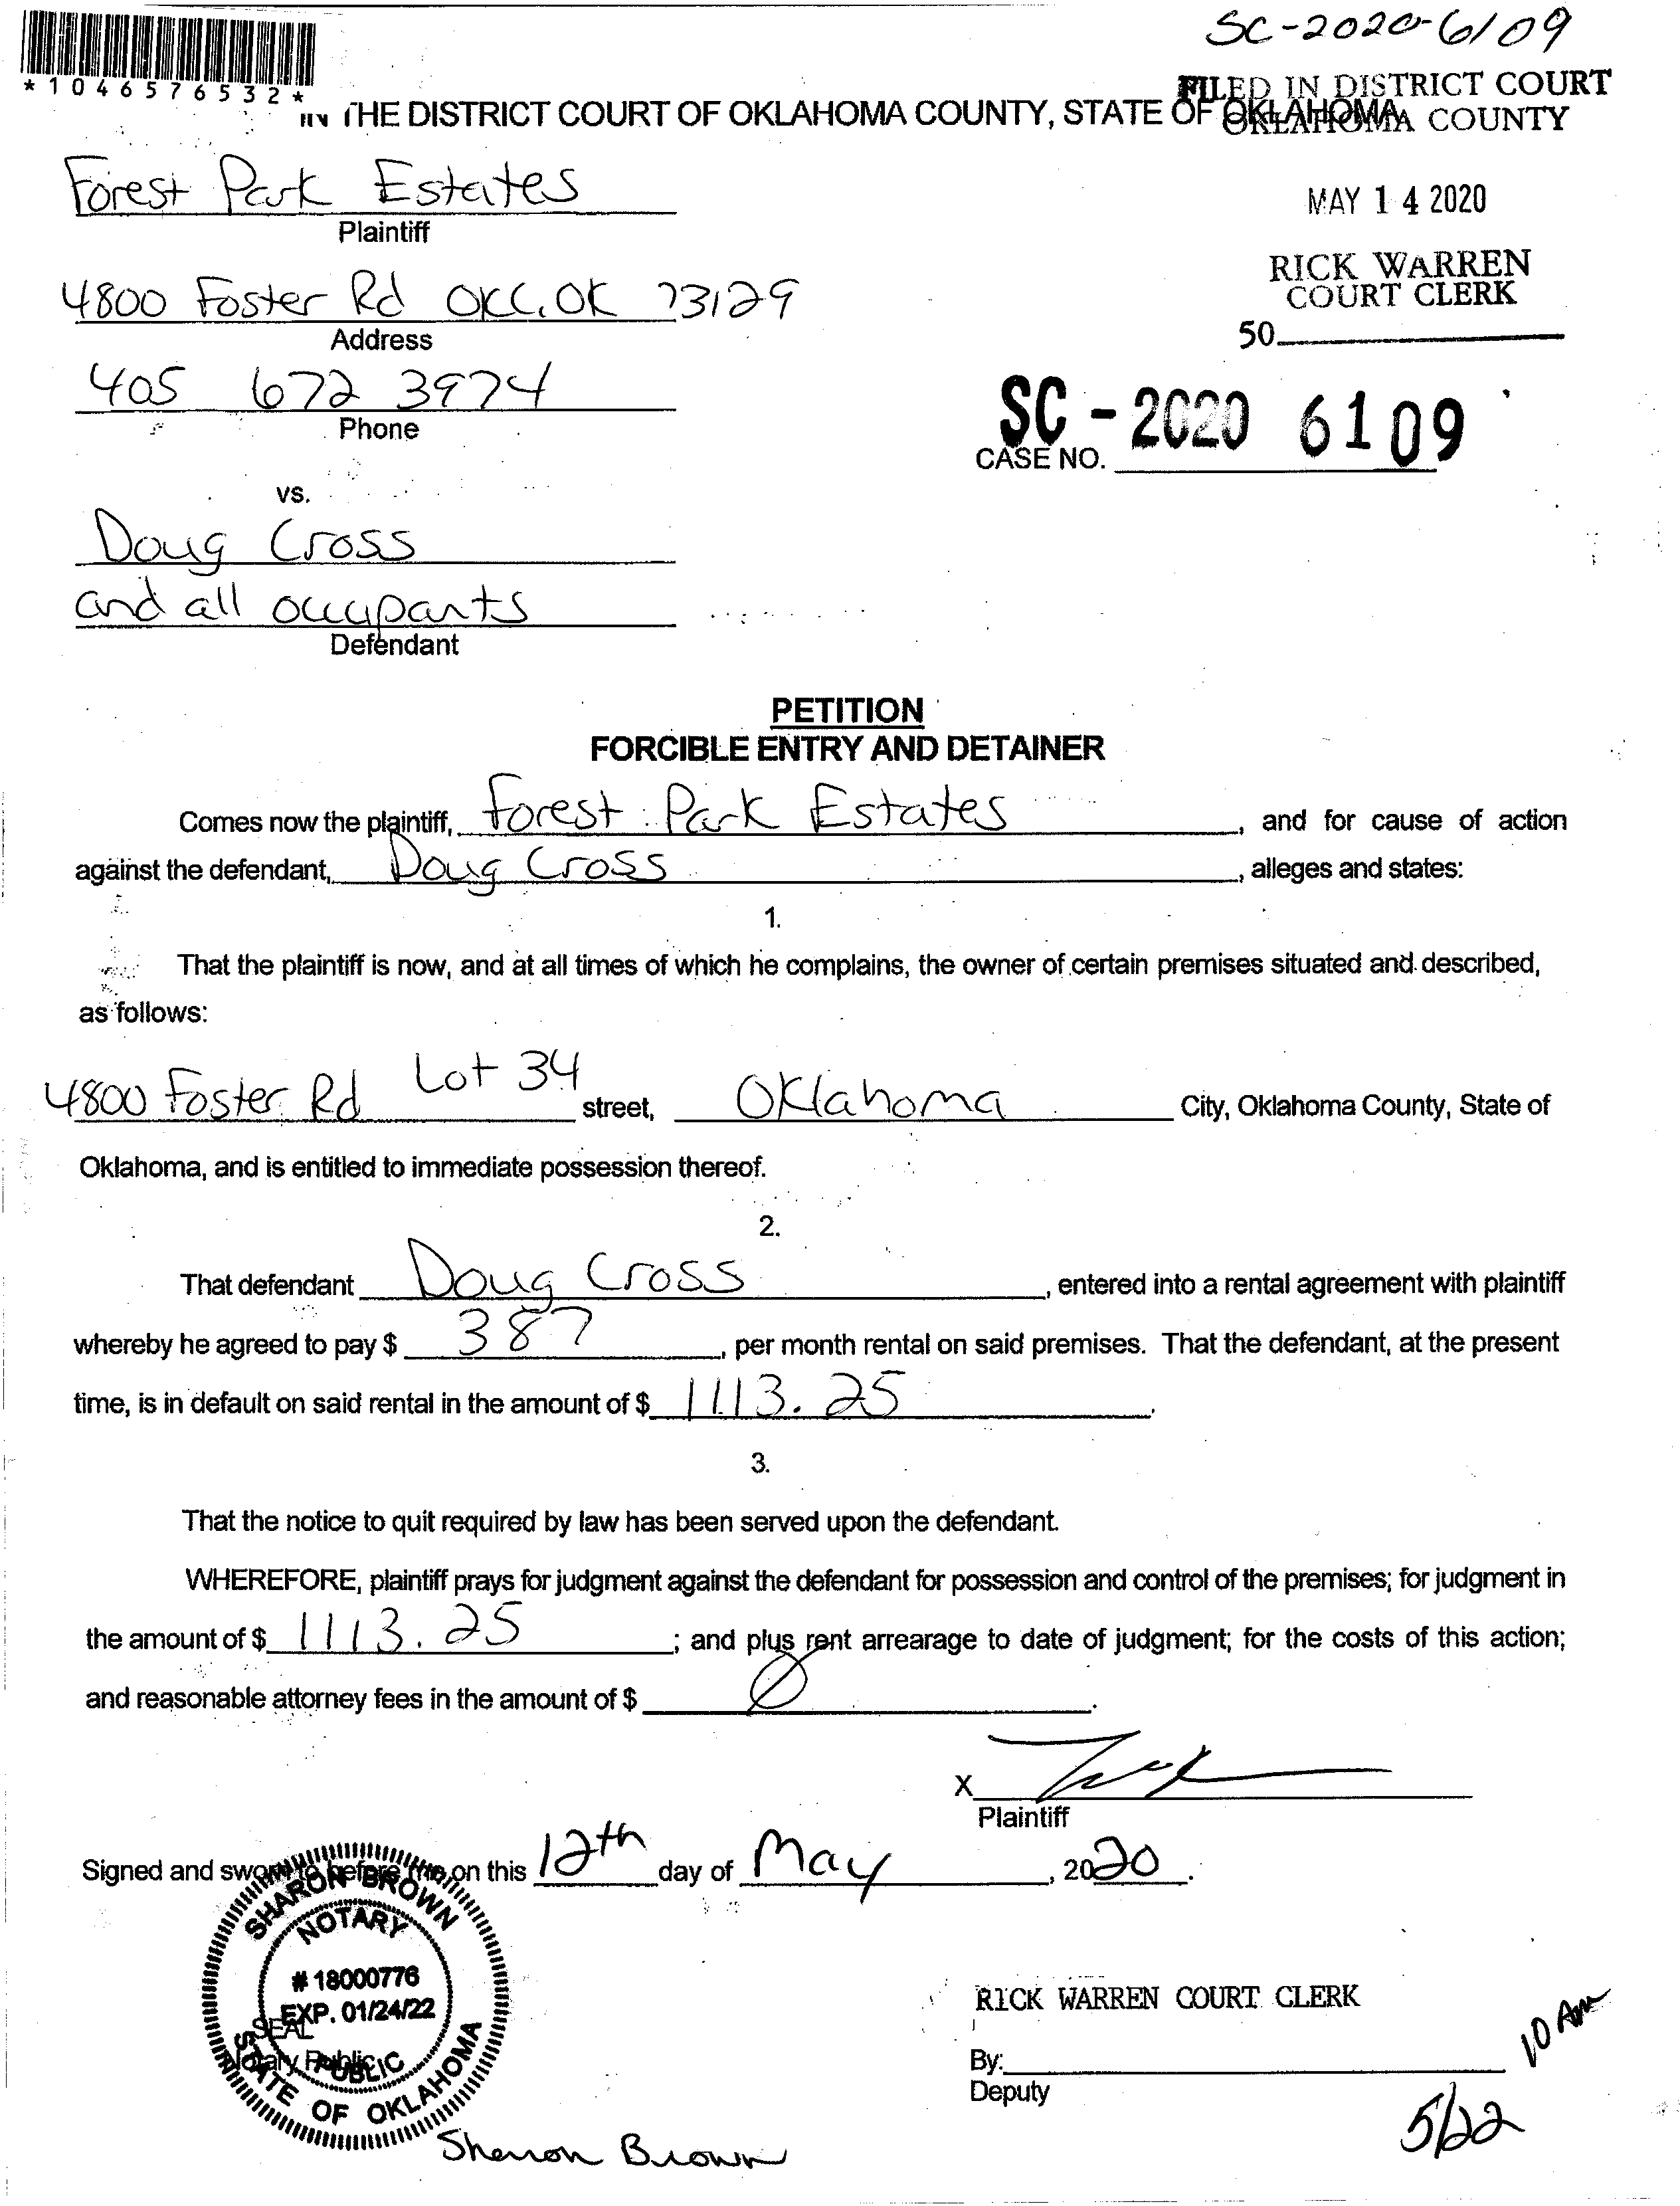 SC-2020-6109
*1046576532*
FILED IN DISTRICT COURT
OKLAHOMA COUNTY
IN THE DISTRICT COURT OF OKLAHOMA COUNTY, STATE OF OKLAHOMA
Forest Park Estates
Plaintiff
MAY 14 2020
4800 Foster Rd OKC, OK 73129
Address
RICK WARREN
COURT CLERK
50
405 672 3974
Phone
SC - 2020 6109
CASE NO.
vs.
Doug Cross
and all occupants
Defendant
PETITION
FORCIBLE ENTRY AND DETAINER
Comes now the plaintiff, Forest Park Estates, and for cause of action
against the defendant, Doug Cross, alleges and states:
1.
That the plaintiff is now, and at all times of which he complains, the owner of certain premises situated and described,
as follows:
4800 Foster Rd Lot 34 street, Oklahoma City, Oklahoma County, State of
Oklahoma, and is entitled to immediate possession thereof.
2.
That defendant Doug Cross, entered into a rental agreement with plaintiff
whereby he agreed to pay $ 387, per month rental on said premises. That the defendant, at the present
time, is in default on said rental in the amount of $ 1113.25.
3.
That the notice to quit required by law has been served upon the defendant.
WHEREFORE, plaintiff prays for judgment against the defendant for possession and control of the premises; for judgment in
the amount of $ 1113.25; and plus rent arrearage to date of judgment; for the costs of this action;
and reasonable attorney fees in the amount of $ Ø.
X
Plaintiff
Signed and sworn to before me on this 12th day of May, 2020.
SHARON BROWN
NOTARY
# 18000776
EXP. 01/24/22
SEAL
Notary Public
PUBLIC
STATE OF OKLAHOMA
Sharon Brown
RICK WARREN COURT CLERK
By:
Deputy
10 Am
5/22